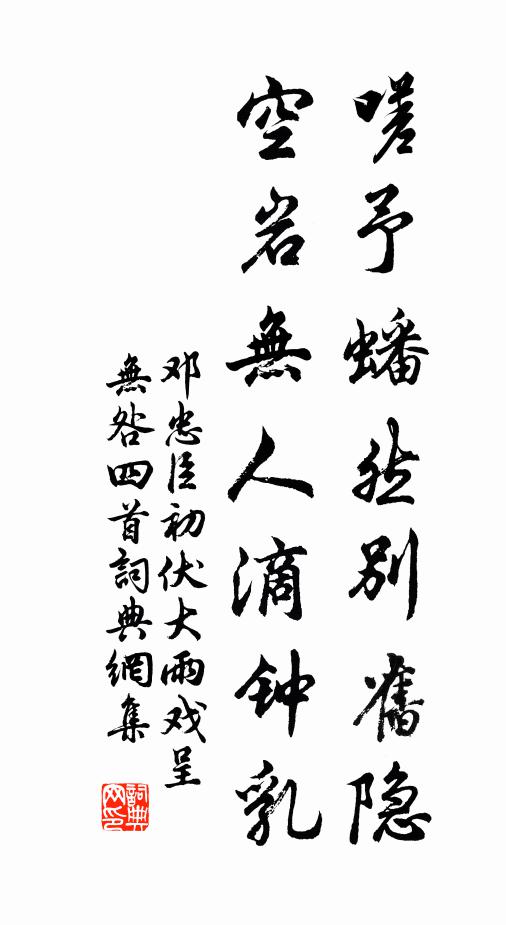 嗟予蟠然别舊隐
空岩無人滴钟乳
邓忠臣初伏大雨戏呈
無咎四首詞典網集
詞典网印